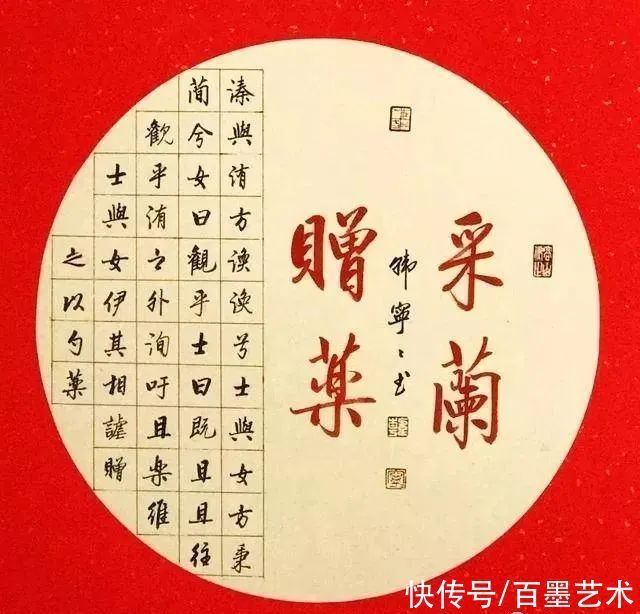 采蘭
贈薬
韩寧〻书
溱與洧方渙渙兮士與女方秉
蕳兮女曰觀乎士曰既且且往
觀乎洧之外洵吁且楽維
士與女伊其相謔贈
之以勺薬
快传号/百墨艺术